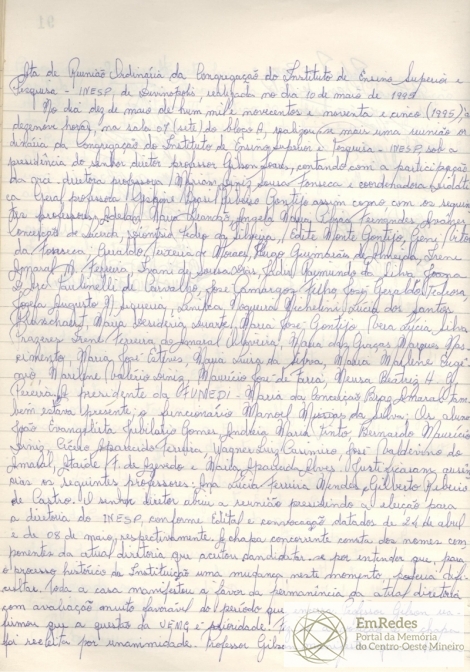 Ata de Reunião Ordinária da Congregação do Instituto de Ensino Superior e
Pesquisa - INESP, de Divinópolis, realizada no dia 10 de maio de 1995
No dia dez de maio de hum mil e novecentos e noventa e cinco (1995), às
dezenove horas, na sala 07 (sete) do bloco A, realizou-se mais uma reunião or
dinária da Congregação do Instituto de Ensino Superior e Pesquisa - INESP, sob a
presidência do senhor diretor professor Gilson Soares, contando com a participação
da vice-diretora professora Fonseca e coordenadora didáti
ca Geral professora Gontijo assim como com os seguin
tes professores: Ângela Maria Fernandes
Conceição de Edite Monte Gontijo,
da Fonseca, Geraldo de Moraes, Guimarães de Almeida, Irene
Amaral M. Ferreira, Irani de Sousa Raimundo da Silva, Joana
Paulinelli de Carvalho, José Camargos Filho, José Geraldo
Josefa Augusto Nogueira Michelini, Lúcia dos Santos
Maria Duarte, Maria José Gontijo, Vera Lúcia Silva
Prazeres, Irene Pereira de Amaral Oliveira, Maria das Graças Marques Nas
cimento, Maria José Esteves, Maria Luiza da Silva, Maria Marlene Eugê
nio, Marilene Valério Diniz, Maurício José de Faria, Neusa Beatriz H. G.
presidente da FUNEDI - Maria da Amaral Tam
bém estava presente o funcionário Manoel Messias da Silva; Os alunos
João Evangelista Gomes, Andréia Maria Pinto, Bernardo Maurício
Diniz, Cícero Aparecido Ferreira, Wagner Luiz Casimiro, José Valdevino do
Amaral, de Azevedo e Marta Aparecida Alves. Justificaram ausên
cias os seguintes professores: Ana Lúcia Ferreira Mendes, Gilberto Ribeiro
de Castro. O senhor diretor abriu a reunião presidindo a eleição para
a diretoria do INESP, conforme Edital e convocação datados de 24 de abril
e de 08 de maio, respectivamente. A chapa concorrente consta dos nomes com
ponentes da atual diretoria que aceitou candidatar-se por entender que, para
o processo histórico da Instituição uma mudança neste momento, poderia difi
cultar. Toda a casa manifestou a favor da permanência da atual diretoria
com avaliação muito favorável do período que Professor Gilson
firmou que a questão da UEMG é prioridade.
foi reeleita por unanimidade. Professor Gilson
EmRedes
Portal da Memória
do Centro-Oeste Mineiro